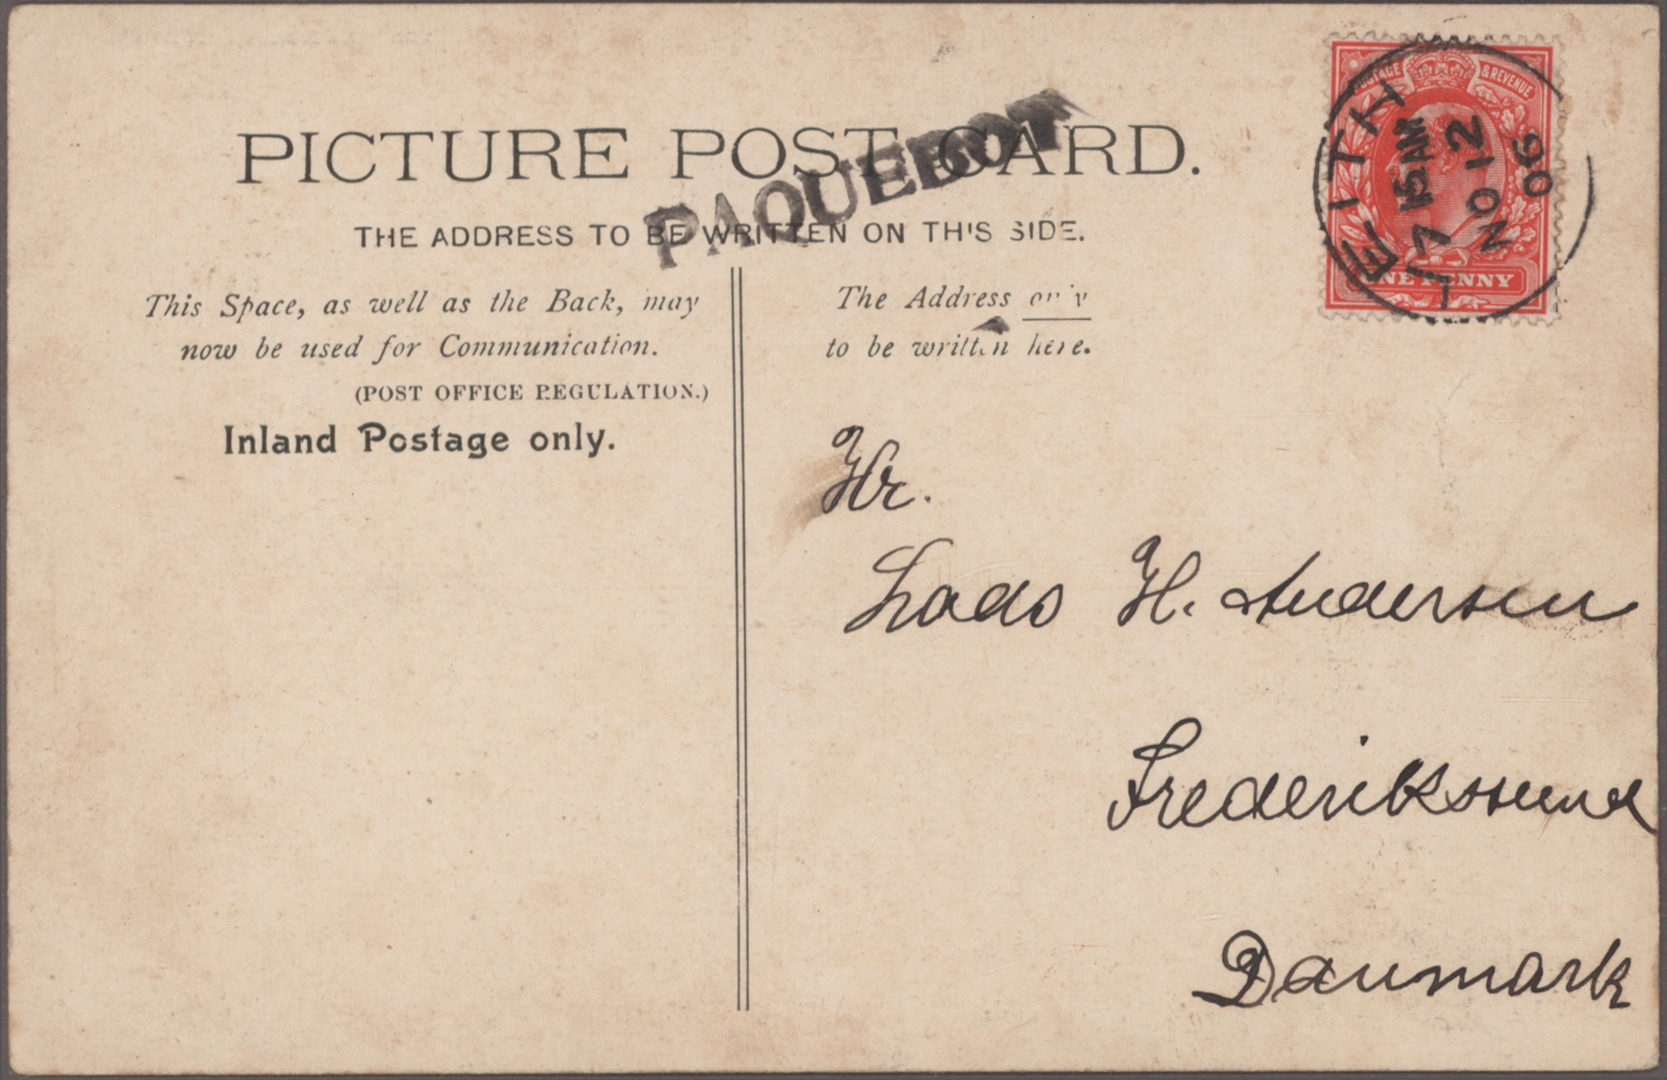 PICTURE POST CARD.
PAQUEBOT
THE ADDRESS TO BE WRITTEN ON THIS SIDE.
This Space, as well as the Back, may
now be used for Communication.
(POST OFFICE REGULATION.)
Inland Postage only.
The Address only
to be written here.
POSTAGE & REVENUE
ONE PENNY
LEITH
7 15 AM
NO 12
06
Hr.
Lads H. Andersen
Frederikssund
Danmark